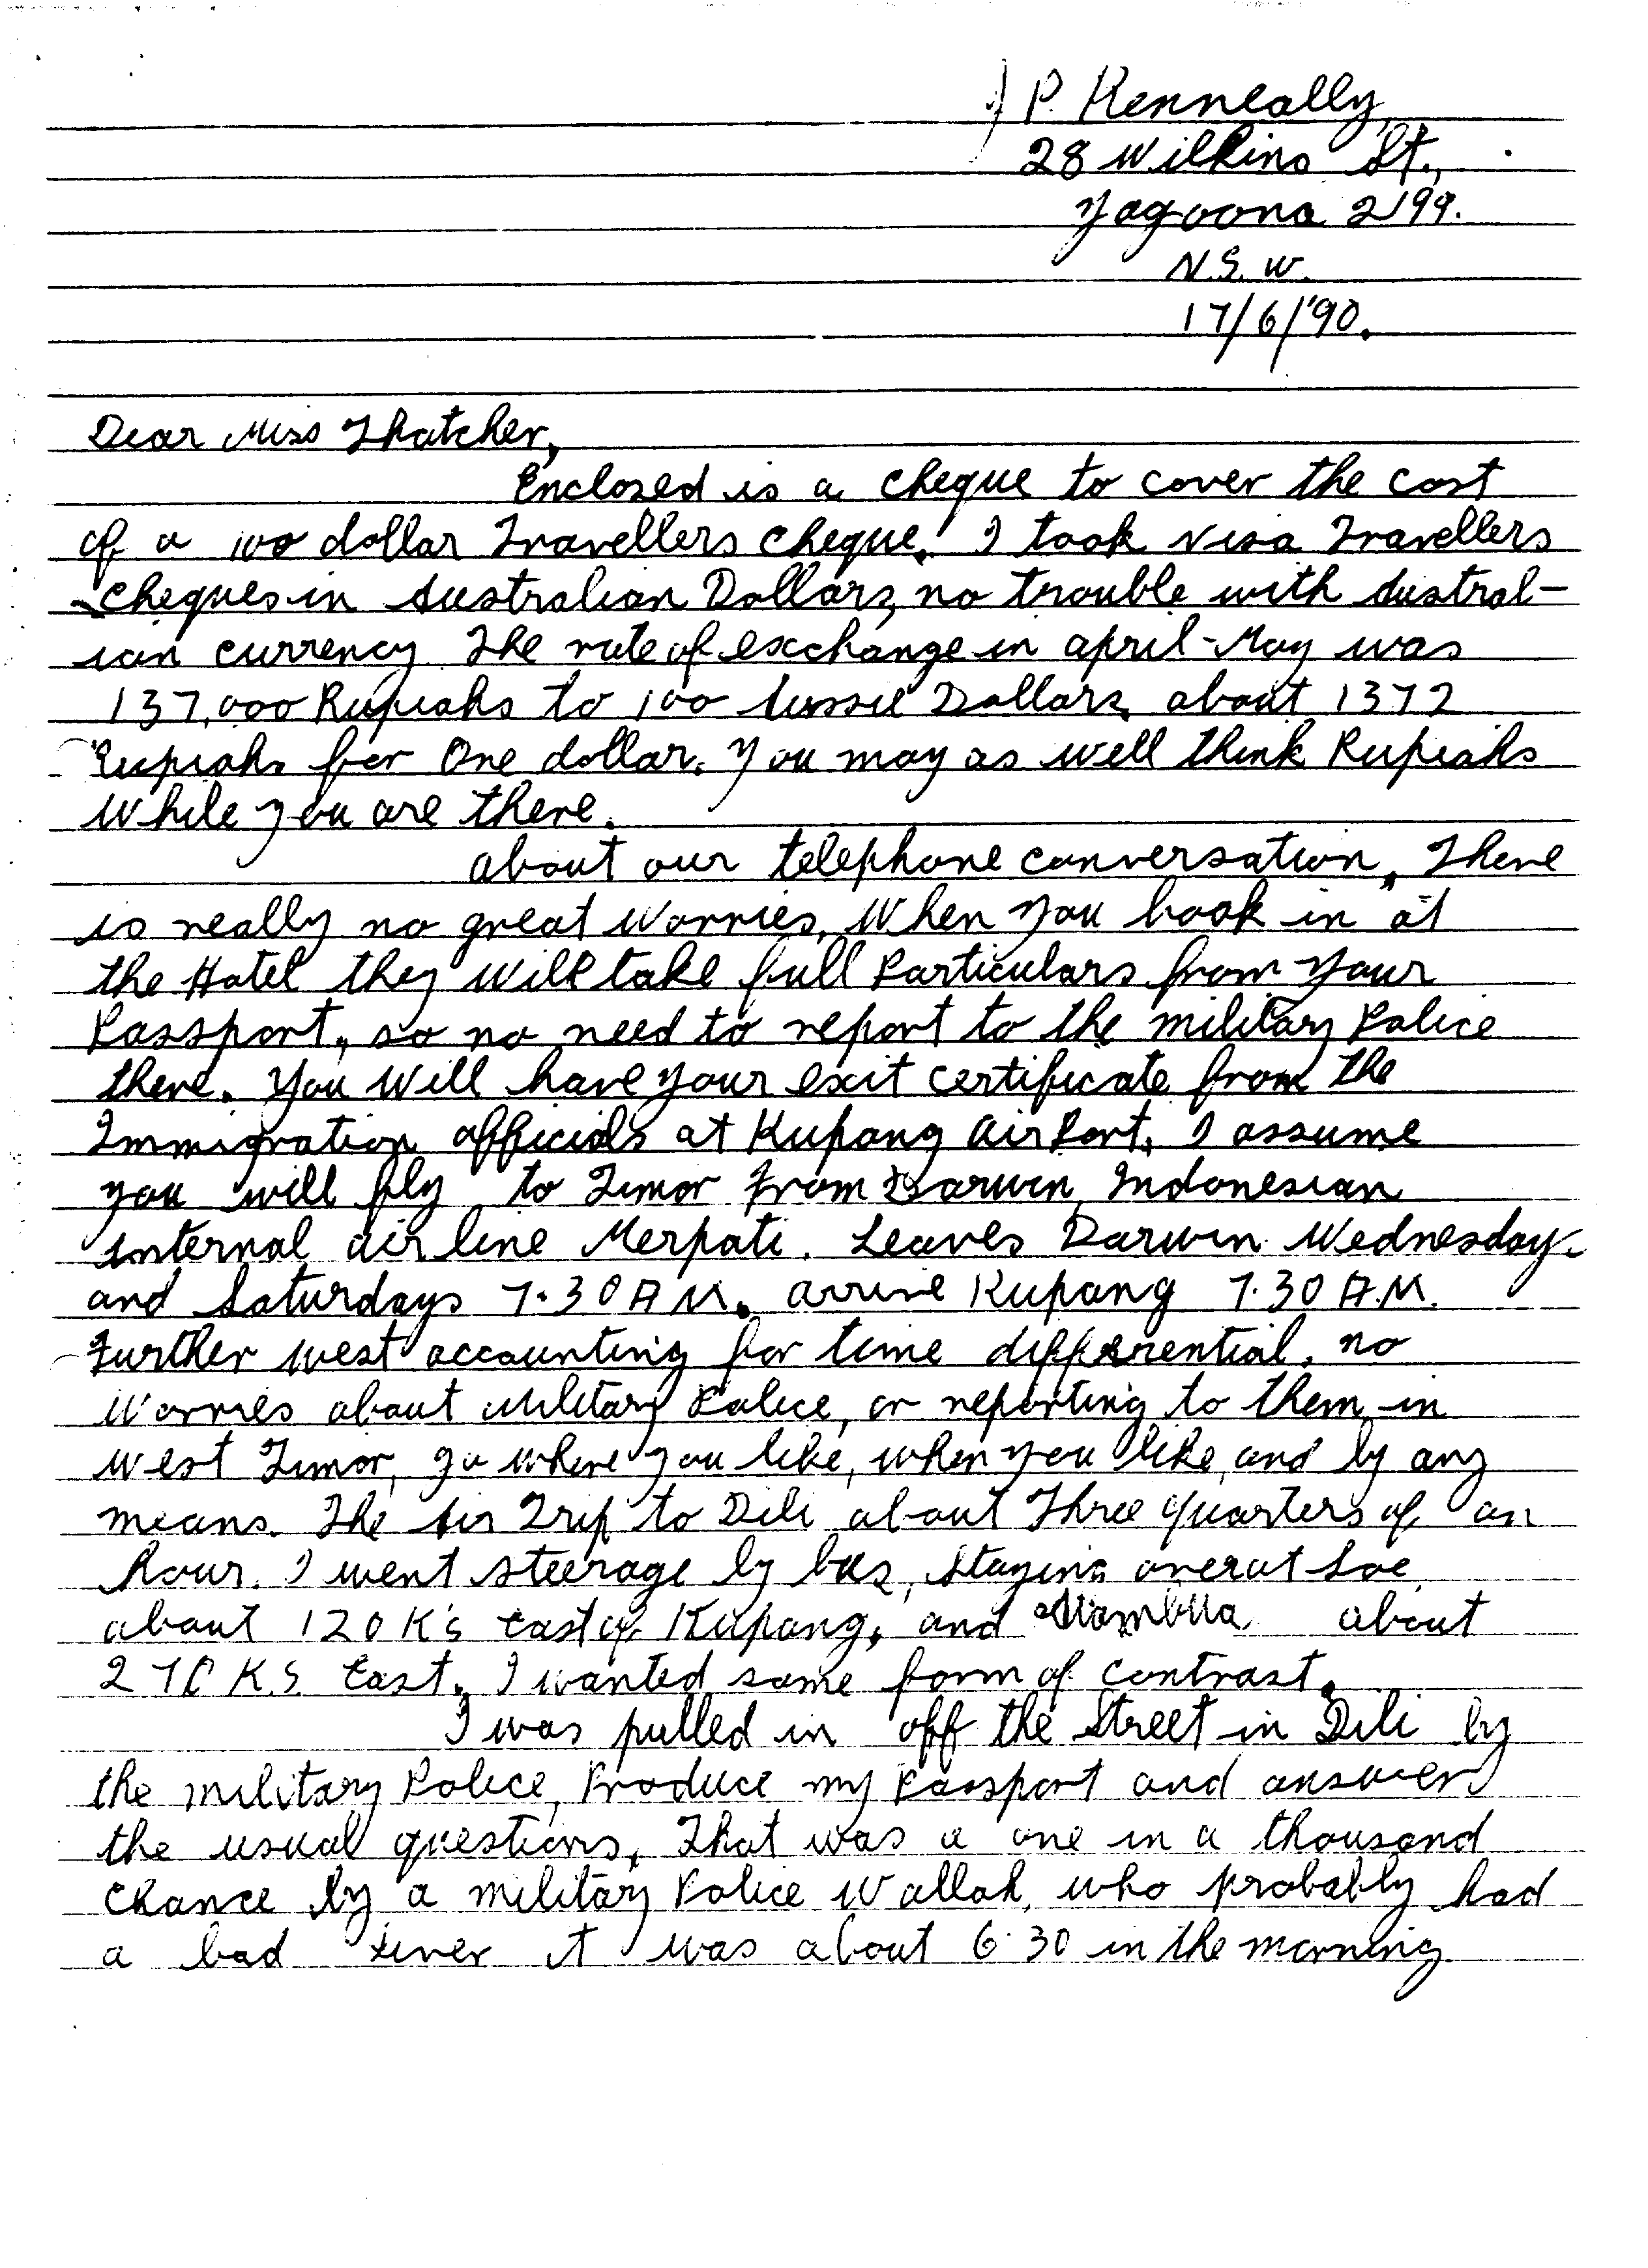 P. Kenneally,
28 Wilkins St.,
Yagoona 2199.
N.S.W.
17/6/'90.
Dear Miss Thatcher,
Enclosed is a cheque to cover the cost
of a 100 dollar Travellers cheque. I took Visa Travellers
cheques in Australian Dollars, no trouble with Austral-
ian currency. The rate of exchange in april-May was
137,000 Rupiahs to 100 Aussie Dollars, about 1372
Rupiahs for One dollar. You may as well think Rupiahs
while you are there.
about our telephone conversation, There
is really no great worries, When you book in at
the Hotel they will take full Particulars from your
Passport, so no need to report to the military Police
there. You will have your exit certificate from the
Immigration officials at Kupang AirPort, I assume
you will fly to Timor from Darwin, Indonesian
internal air line Merpati. Leaves Darwin Wednesday
and Saturdays 7.30 A.M. arrive Kupang 7.30 A.M.
Further west accounting for time differential, no
worries about Military Police, or reporting to them in
West Timor, go where you like, when you like, and by any
means. The Air Trip to Dili about Three quarters of an
hour. I went steerage by bus, staying over at Soe,
about 120 K's East of Kupang, and about
270 K.S. East. I wanted some form of contrast.
I was pulled in off the Street in Dili by
the military Police, Produce my Passport and answer
the usual questions, That was a one in a thousand
chance by a military Police Wallah, who probably had
a bad liver it was about 6.30 in the morning.